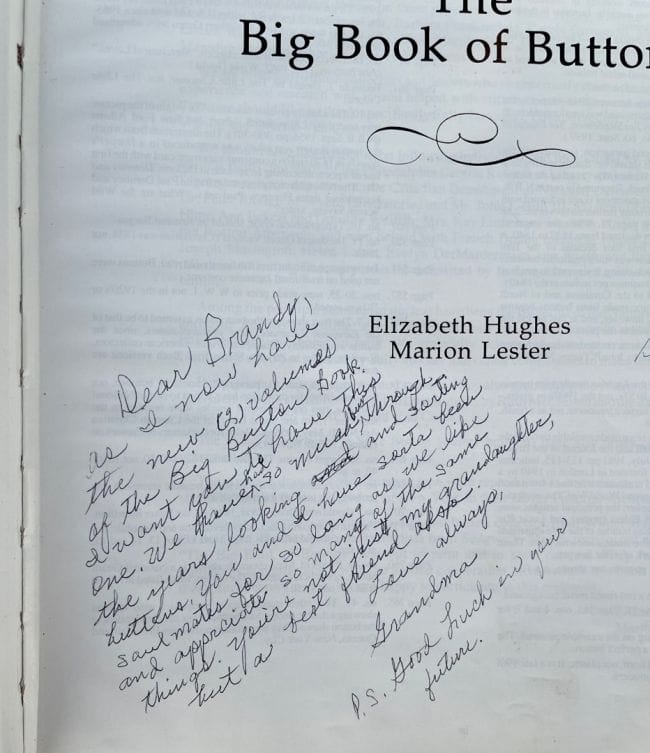 The
Big Book of Button
Elizabeth Hughes
Marion Lester
Dear Brandy,
as I now have
the new (2) volumes
of the Big Button Book
I want you to have this
one. We have had so much fun through
the years looking and and sorting
buttons. You and I have sorta been
soul mates for so long as we like
and appreciate so many of the same
things. You're not just my grandaughter,
but a best friend also.
Love always,
Grandma
P.S. Good luck in your
future.